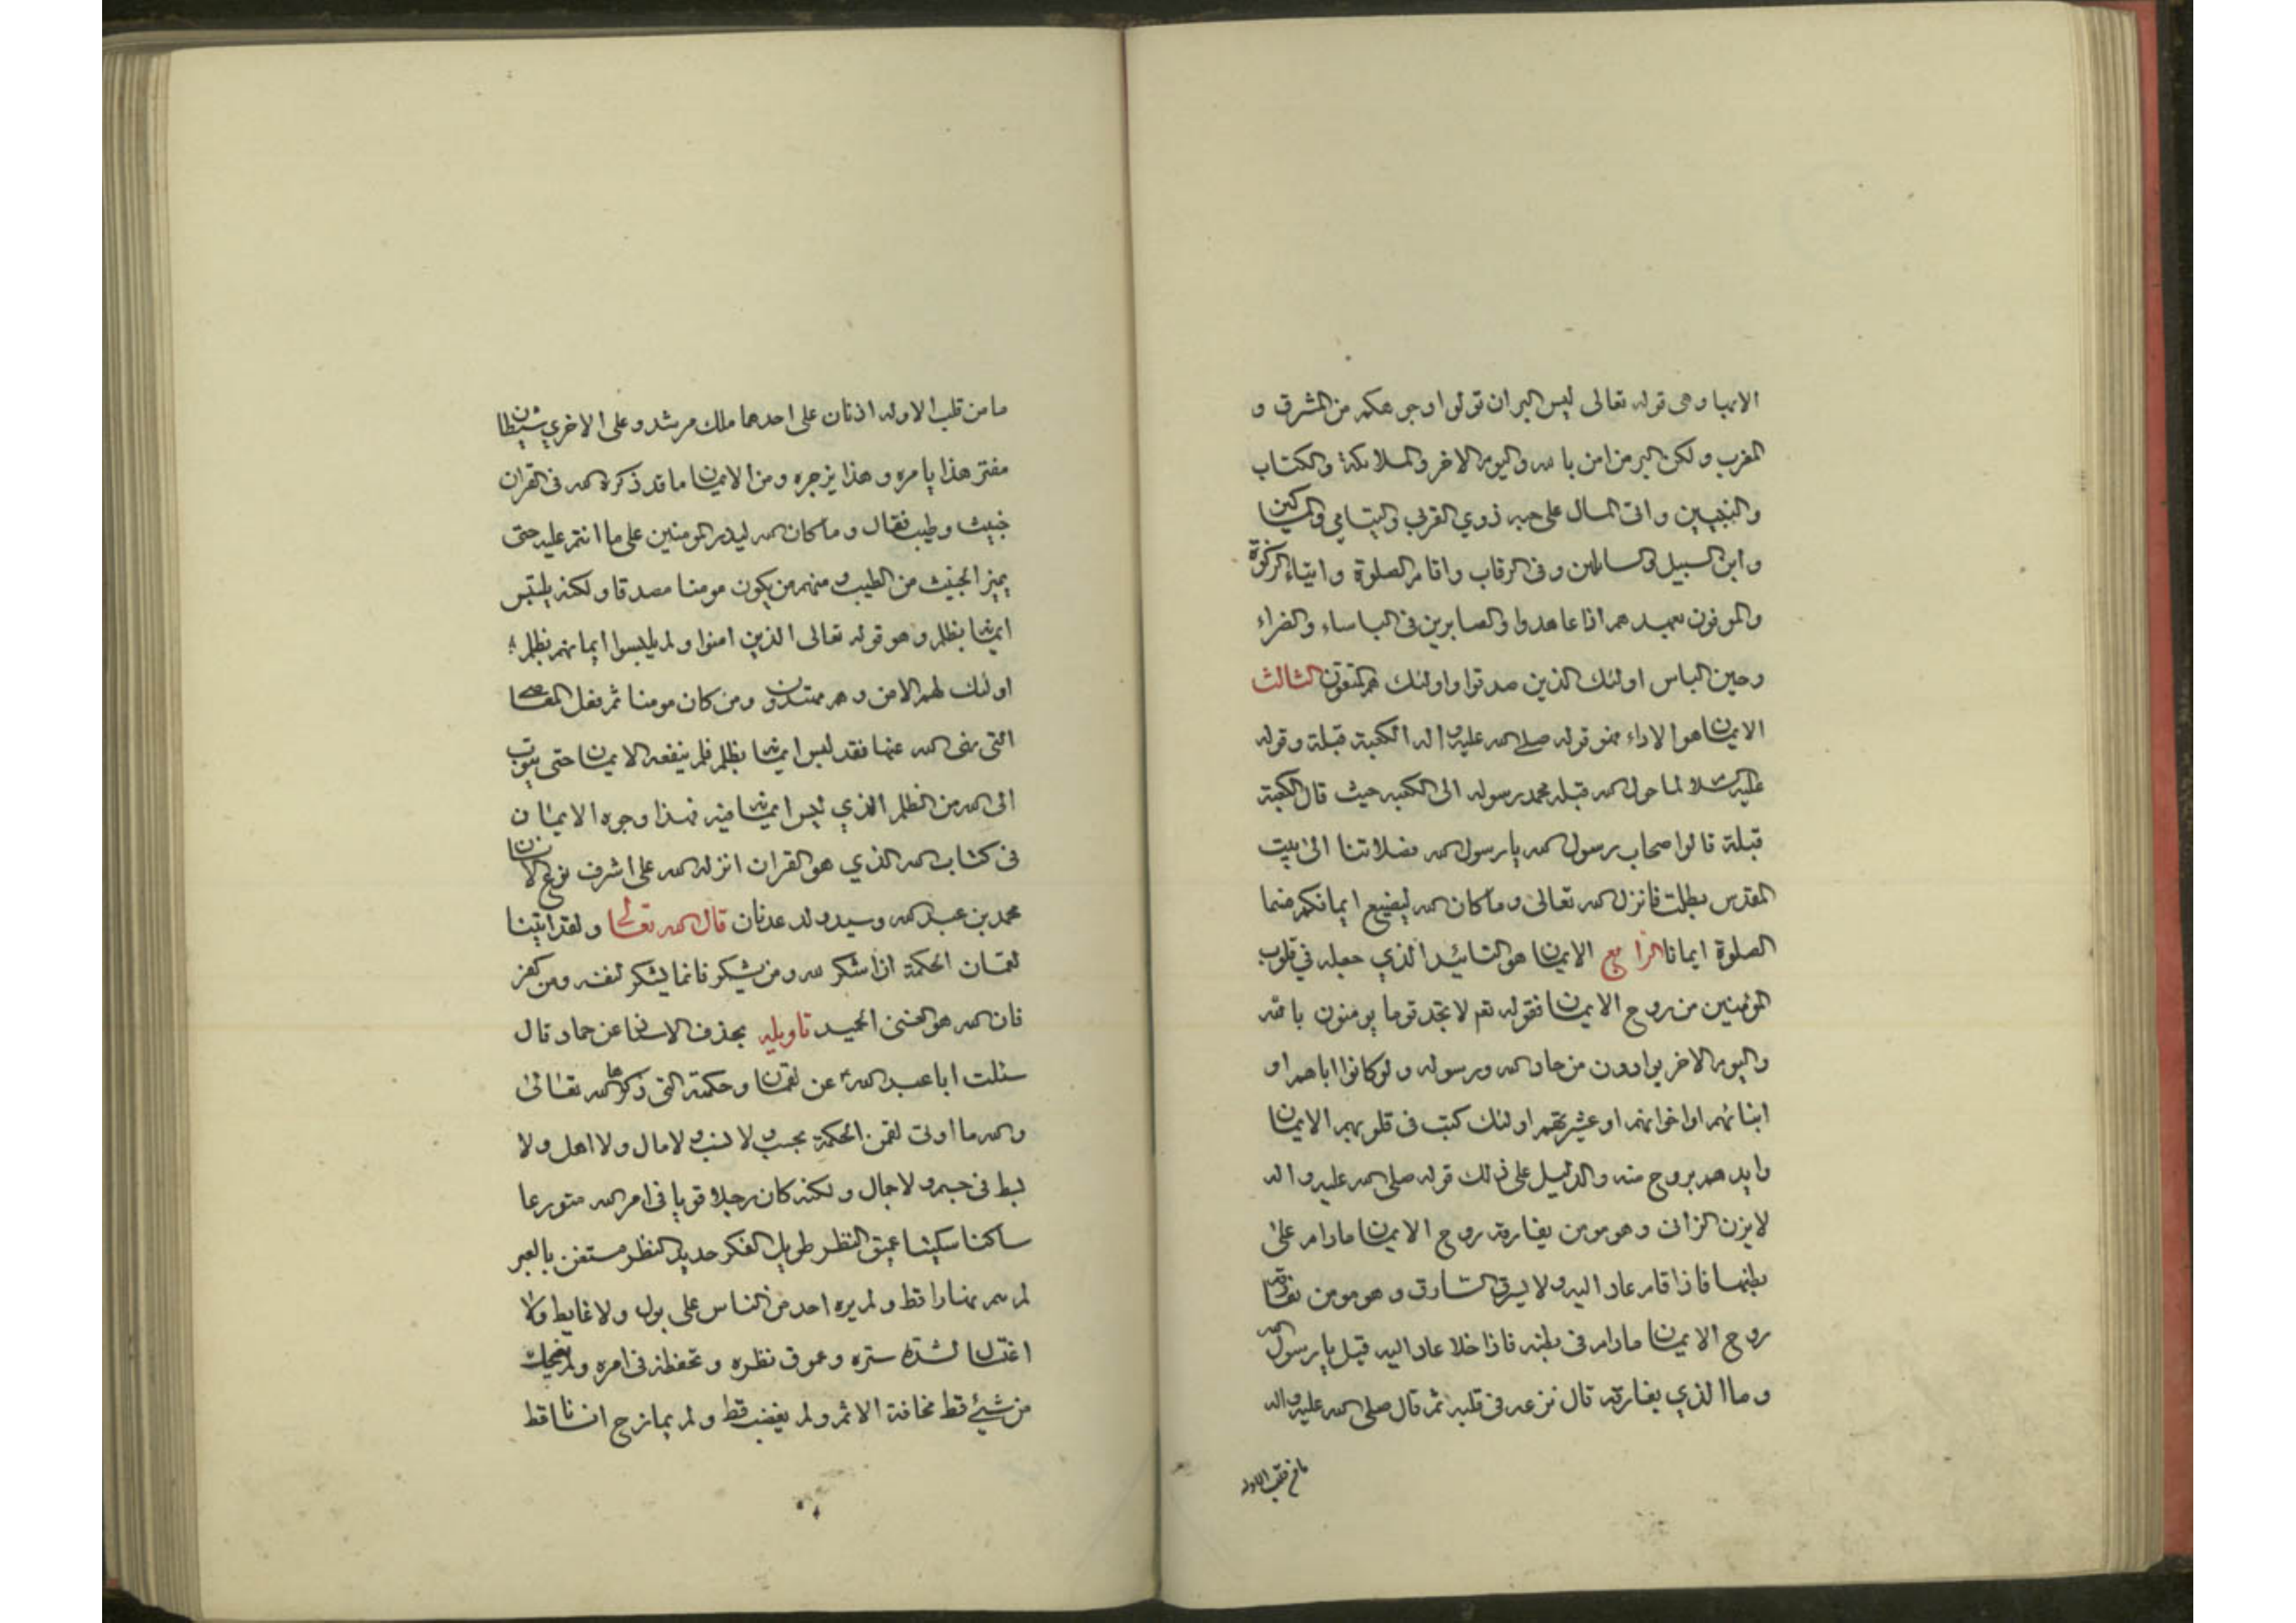 الايمان وهى قوله تعالى ليس البر ان تولوا وجوهكم من المشرق و
المغرب ولكن البر من امن بالله واليوم الاخر والملائكة والكتاب
والنبيين واتى المال على حبه ذوي القربى واليتامى والمساكين
وابن السبيل والسائلين وفى الرقاب واقام الصلوة وايتاء الزكوة
والموفون بعهدهم اذا عاهدوا والصابرين فى الباساء والضراء
وحين الباس اولئك الذين صدقوا واولئك هم المتقون الثالث
الايمان هو الاداء فهو قوله صلى الله عليه واله الكعبة قبلة وقوله
عليه السلام لما حول الله قبلة محمد رسوله الى الكعبه حيث قال الكعبة
قبلة قالوا صحاب رسول الله يا رسول الله فصلاتنا الى بيت
المقدس بطلت فانزل الله تعالى وما كان الله ليضيع ايمانكم فسما
الصلوة ايمانا الرابع الايمان هو التائيد الذي جعله في قلوب
المؤمنين من روح الايمان فقوله تعم لا تجد قوما يومنون بالله
واليوم الاخر يوادون من حاد الله ورسوله ولو كانوا اباهم او
ابنائهم او اخوانهم او عشيرتهم اولئك كتب فى قلوبهم الايمان
وايدهم بروح منه والدليل على ذلك قوله صلى الله عليه واله
لا يزن الزانى وهو مومن يفارقه روح الايمان مادام على
بطنها فاذا قام عاد اليه ولا يسرق السارق وهو مومن تفارقه
روح الايمان مادام فى بطنه فاذا خلا عاد اليه قيل يا رسول الله
وما الذي يفارقه قال نزعه فى قلبه ثم قال صلى الله عليه واله
ما من قلب الاوله
ما من قلب الا وله اذنان على احدهما ملك مرشد وعلى الاخري شيطان
مفتر هذا يامره وهذا يزجره ومن الايمان ما قد ذكره الله فى القران
خبيث وطيب فقال وما كان الله ليذر المومنين على ما انتم عليه حتى
يميز الخبيث من الطيب ومنهم من يكون مومنا مصدقا ولكنه يلتبس
ايمانه بظلم وهو قوله تعالى الذين امنوا ولم يلبسوا ايمانهم بظلم
اولئك لهم الامن وهم مهتدون ومن كان مومنا ثم فعل المعاصي
التى نهى الله عنها فقد لبس ايمانه بظلم فلم ينفعه الايمان حتى يتوب
الى الله من الظلم الذي لبس ايمانه فيه فهذا وجوه الايمان
فى كتاب الله الذي هو القران انزله الله على اشرف نوع الانسان
محمد بن عبد الله وسيد ولد عدنان قال الله تعالى ولقد اتينا
لقمان الحكمة ان اشكر لله ومن يشكر فانما يشكر لنفسه ومن كفر
فان الله هو الغنى الحميد تاويله بحذف الاسناد عن حماد قال
سئلت ابا عبد الله عن لقمان وحكمته التى ذكرها الله تعالى
والله ما اوتى لقمن الحكمة بحسب ولا نسب ولا مال ولا اهل ولا
بسط فى جسم ولا جمال ولكنه كان رجلا قويا فى امر الله متورعا
ساكنا سكينا عميق النظر طويل الفكر حديد النظر مستغن بالعبر
لم ينم نهارا قط ولم يره احد من الناس على بول ولا غايط ولا
اغتسال لشدة ستره وعموق نظره وتحفظه فى امره ولم يضحك
من شيئ قط مخافة الاثم ولم يغضب قط ولم يمازح انسانا قط